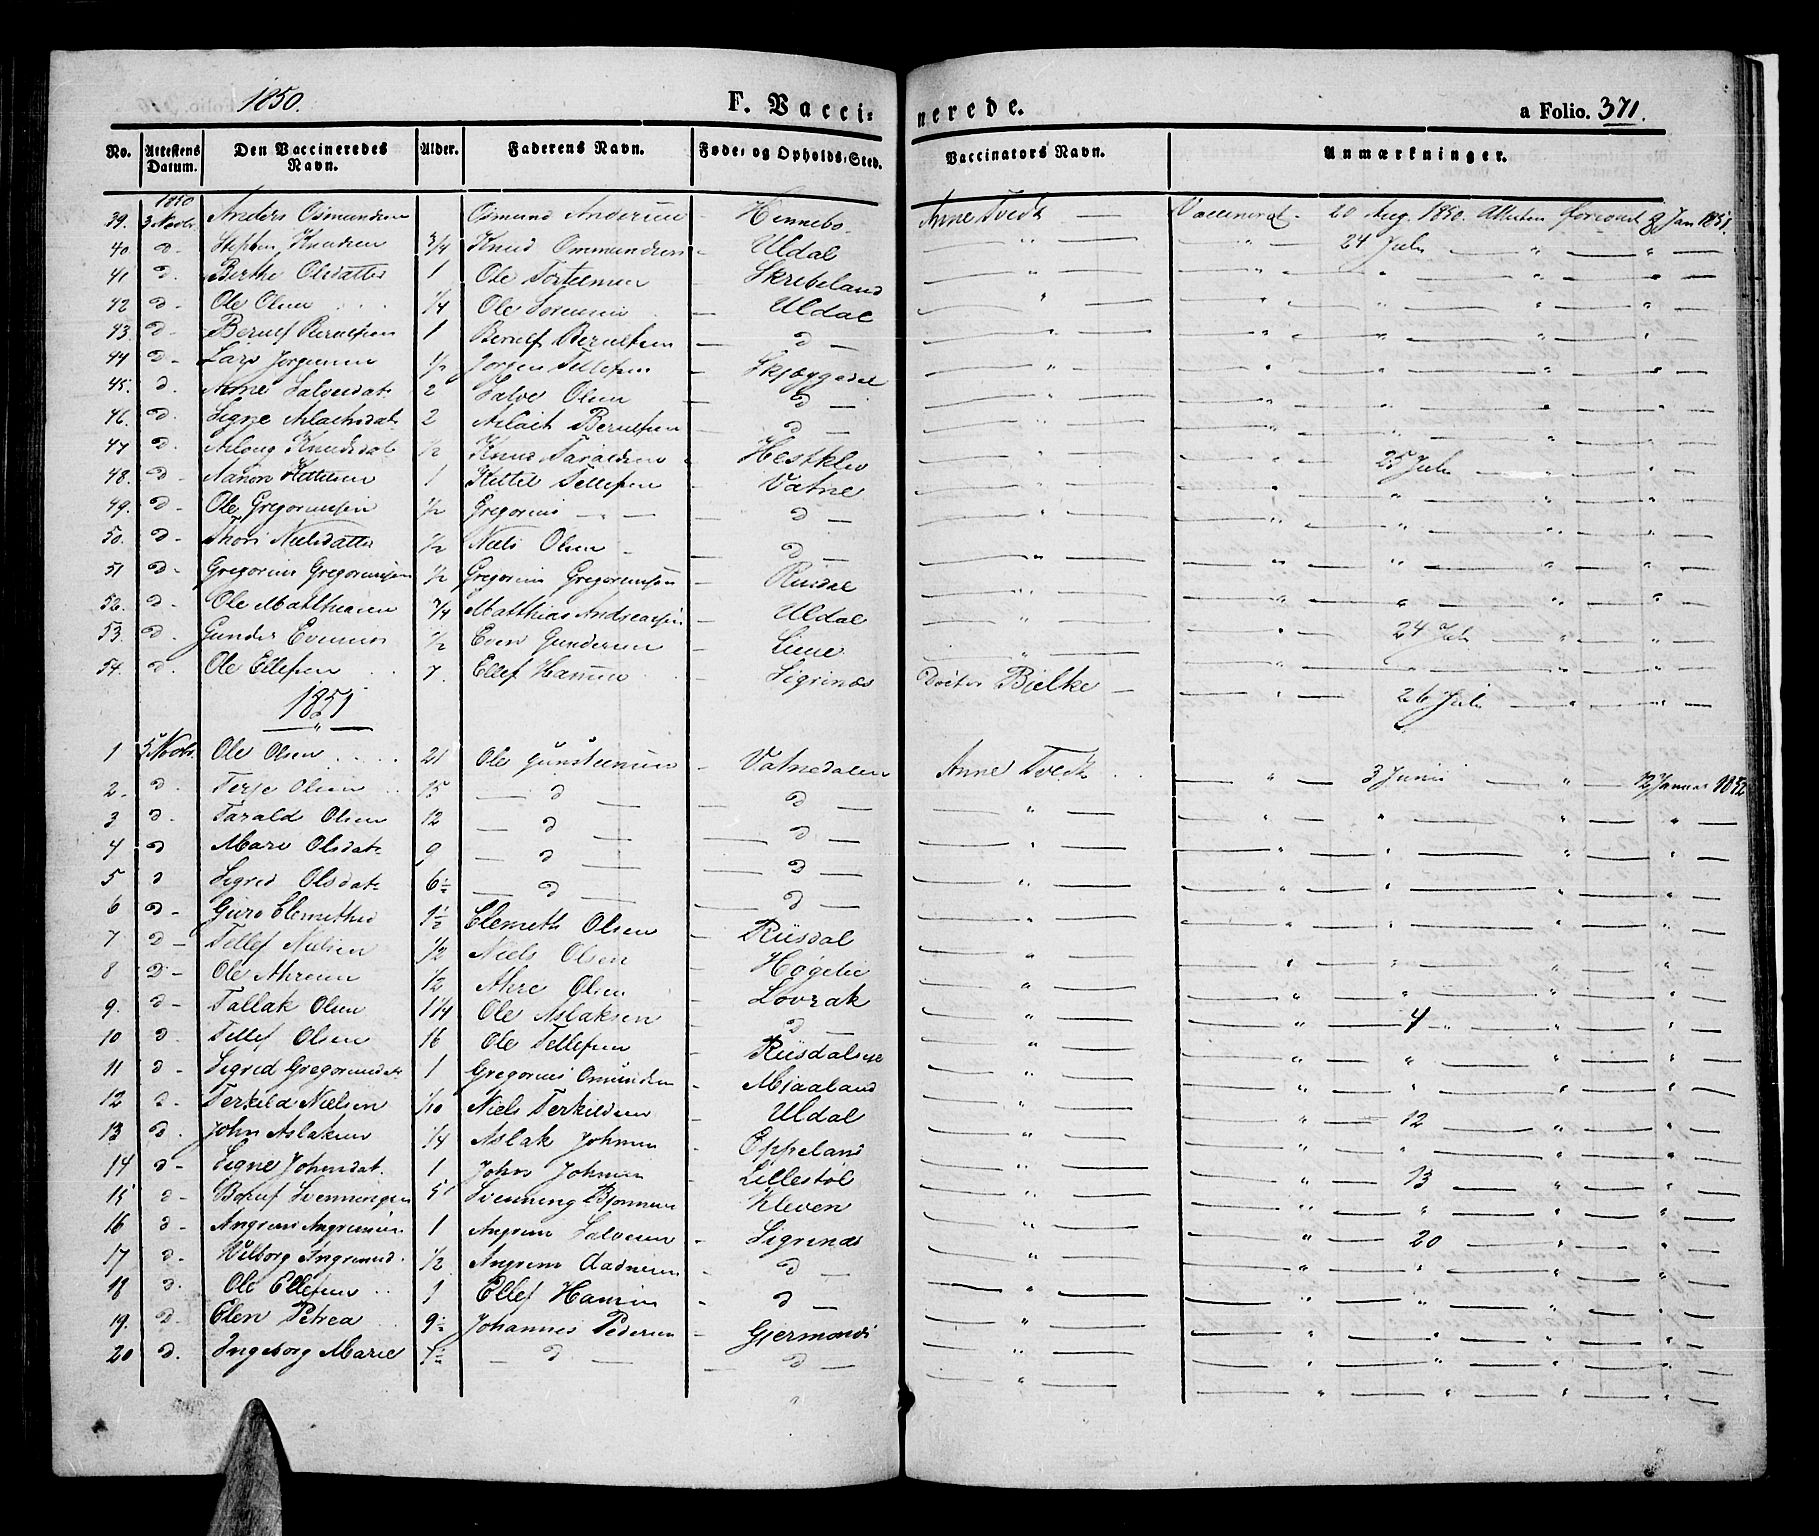 1850.
F. Vaccinerede.
a Folio. 371.
No. Attestens Datum. Den Vaccineredes Navn. Alder. Faderens Navn. Føde- og Opholds-Sted. Vaccinators Navn. Anmærkninger.
1850
39. 3 Novbr Anders Osmundsen Osmund Andersen - Hennebo Anne Tvedt — Vaccineret - 20 Aug. 1850. Attesten 8 Jan 1851.
40. d - Knudsen 3/4 Knud Ommundsen Uldal " — " — 24 Juli — " — " —
41 d. Berthe Olsdatter 1 Ole - Skribeland "
42 d - Ole Olsen 1/4 Ole Sørensen - Uldal "
43. d - Berulf Berulfsen 1 Berulf Berulfsen — d — "
44 d - Lars Jørgensen 1/2 Jørgen Tellefsen - Skjæggedal "
45. d. Anne Salvesdat. 2 Salve Olsen - d — "
46. d - Signe Aslachsdat. 2 Aslach Berulfsen - d — "
47 d - Knudsdat 1/2 Knud Taraldsen - Hestklev " — 25 Juli — "
48. d - 1 Kittil Tellefsen - Vatne "
49. d - Ole Gregoriussen 1/2 Gregorius — — d — "
50. d - Thori Nielsdatter 1/2 Niels Olsen - — d — "
51 d - Gregorius Gregoriussen 1/2 Gregorius Gregoriussen - Riisdal "
52. d - Ole Matthiasen 3/4 Matthias Andreassen - Uldal "
53. d - Gunder Evensen 1/2 Even Gundersen - Liene " — 24 Juli — "
54. d. Ole Ellefsen 7. Ellef Hansen - Sigrinæs Doctor Bielke — " — 26 Juli — " — "
1851
1 5 Novbr. Ole Olsen 21 Ole Gunsteensen - Vatnedalen Anne Tvedt — " — 3 Junii — " — 12 Januar 1852
2. d. Terje Olsen 15 — d — — d — "
3 d. Tarald Olsen 12 — d — — d — "
4 d Mari Olsdat. 9 — d — — d — "
5 d Sigrid Olsdat. 6 1/2 — d — — d — "
6 d - Guro 1 1/2 Clemeth Olsen - Riisdal "
7 d - Tellef Nielsen 1/2 Niels Olsen - Høgelie "
8 d - Ole Ahresen 1/2 Ahre Olsen - Lovrak "
9. d - Tallak Olsen 1 1/4 Ole Aslaksen - d — " — 4 — "
10 d. Tellef Olsen 16 Ole Tellefsen - "
11 d - Sigrid Gregoriusdat. 1 Gregorius Omundsen - Mjaaland "
12 d - Terkild Nielsen 1/10 Niels Terkildsen - Uldal " — 12 — "
13. d. John Aslaksen 1/4 Aslak Johnsen - Oppeland "
14 d - Signe Johnsdat. 1 John Johnsen - Lillestøl " — 13 — "
15 d - Svenningsen 5 Svenning Bjørnsen - Kleven "
16 d - 1 Angrim Salvesen - Sigrinæs " — 20 — "
17 d. Wilborg 1/2 Angrim Aadnesen - d — "
18 d. Ole Ellefsen 1 Ellef Hansen - d — "
19. d. Elen Petrea 9 1/2 Johannes Pedersen - "
20 d. Ingeborg Marie 7 1/2 — d — — d — "